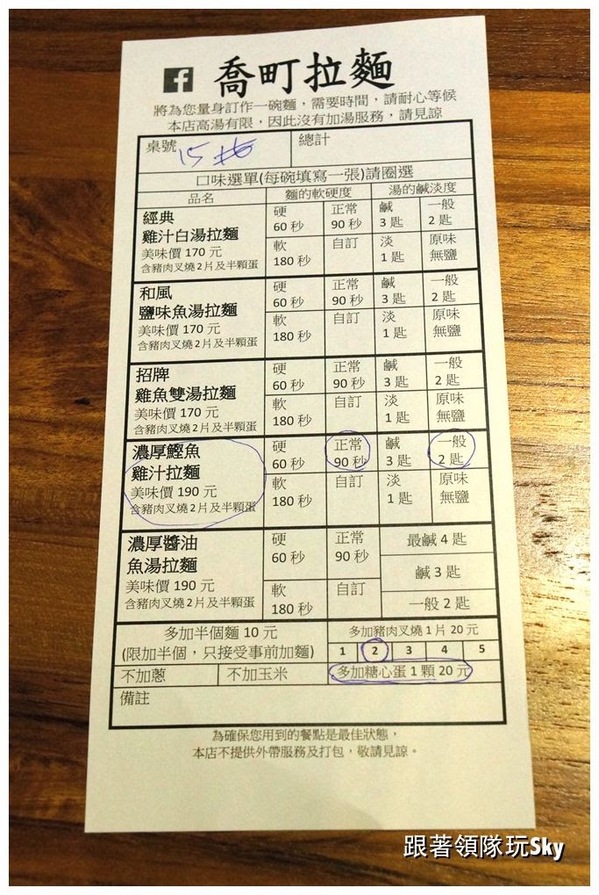 f 喬町拉麵
將為您量身訂作一碗麵，需要時間，請耐心等候
本店高湯有限，因此沒有加湯服務，請見諒
桌號 15 總計
口味選單(每碗填寫一張)請圈選
品名 麵的軟硬度 湯的鹹淡度
經典 硬 正常 鹹 一般
雞汁白湯拉麵 60 秒 90 秒 3 匙 2 匙
美味價 170 元 軟 自訂 淡 原味
含豬肉叉燒 2 片及半顆蛋 180 秒 1 匙 無鹽
和風 硬 正常 鹹 一般
鹽味魚湯拉麵 60 秒 90 秒 3 匙 2 匙
美味價 170 元 軟 自訂 淡 原味
含豬肉叉燒 2 片及半顆蛋 180 秒 1 匙 無鹽
招牌 硬 正常 鹹 一般
雞魚雙湯拉麵 60 秒 90 秒 3 匙 2 匙
美味價 170 元 軟 自訂 淡 原味
含豬肉叉燒 2 片及半顆蛋 180 秒 1 匙 無鹽
濃厚鰹魚 硬 正常 鹹 一般
雞汁拉麵 60 秒 90 秒 3 匙 2 匙
美味價 190 元 軟 自訂 淡 原味
含豬肉叉燒 2 片及半顆蛋 180 秒 1 匙 無鹽
濃厚醬油 硬 正常 最鹹 4 匙
魚湯拉麵 60 秒 90 秒 鹹 3 匙
美味價 190 元 軟 自訂
含豬肉叉燒 2 片及半顆蛋 180 秒 一般 2 匙
多加半個麵 10 元 多加豬肉叉燒 1 片 20 元
(限加半個，只接受事前加麵) 1 2 3 4 5
不加蔥 不加玉米 多加糖心蛋 1 顆 20 元
備註
為確保您用到的餐點是最佳狀態，
本店不提供外帶服務及打包，敬請見諒。
跟著領隊玩Sky